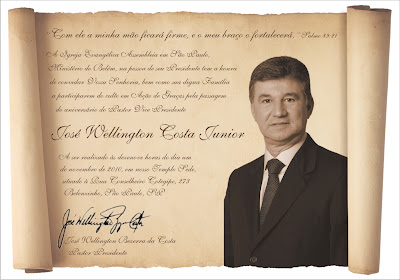 "Com ele a minha mão ficará firme, e o meu braço o fortalecerá." Salmo 89:21
A Igreja Evangélica Assembleia em São Paulo,
Ministério do Belém, na pessoa do seu Presidente tem a honra de
convidar Vossa Senhoria, bem como sua digna Família
a participarem do culto em Ação de Graças pela passagem
do aniversário do Pastor Vice Presidente
José Wellington Costa Junior
A ser realizado às dezenove horas do dia um
de novembro de 2010, em nosso Templo Sede,
situado à Rua Conselheiro Cotegipe, 273
Belenzinho, São Paulo, S.P.
José Wellington Bezerra da Costa
Pastor Presidente